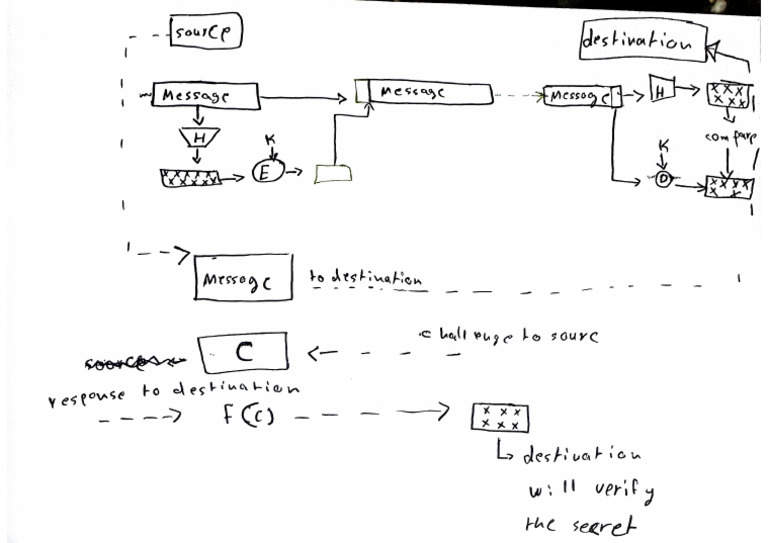 source
destination
Message
Message
Message
H
H
K
E
K
D
compare
Message
to destination
C
challenge to source
response to destination
F(c)
destination
will verify
the secret